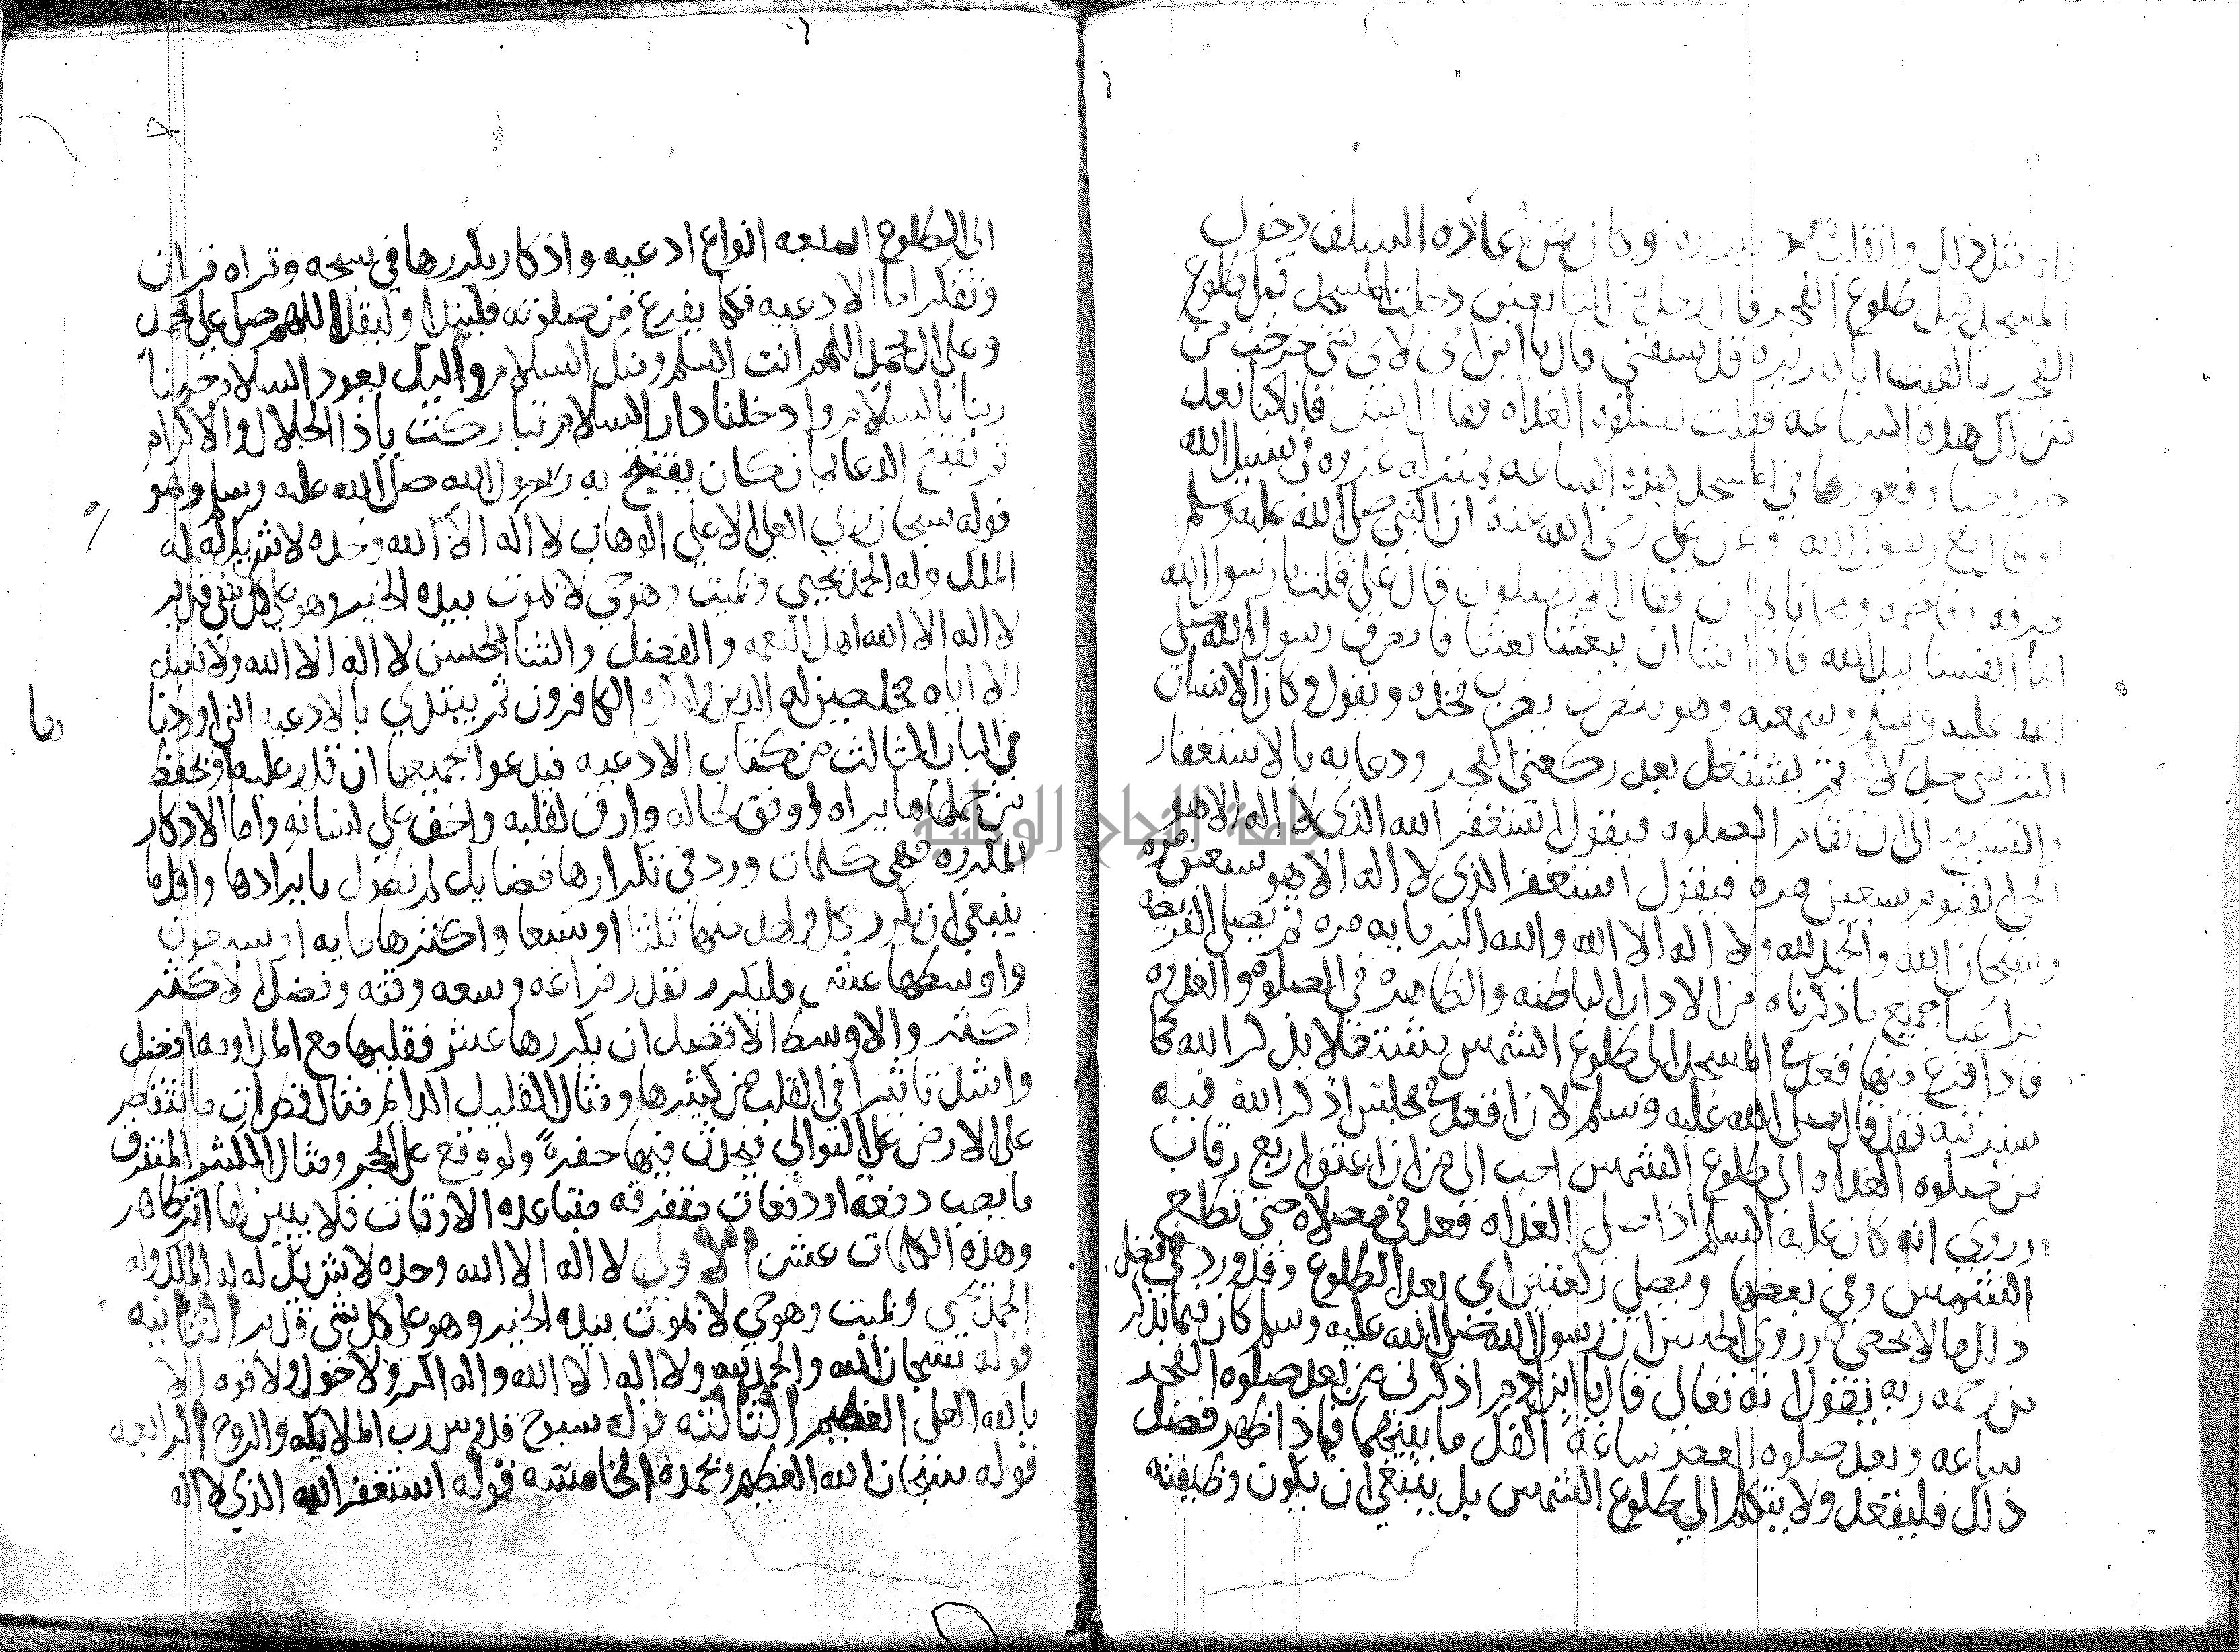 مثل ذلك وانقلب وكان من عادة السلف دخول
المسجد قبل طلوع الفجر قال رجل من التابعين دخلت المسجد قبل طلوع
الفجر فالفيت ابا هريره قد سبقني قال يا ابن اخي لاي شي خرجت من
منزلك هذه الساعه فقلت لصلوه الغداه فقال ابشر فانا كنا نعد
خروجنا وقعودنا في المسجد هذه الساعه بمنزله غزوه في سبيل الله
او قال مع رسول الله وعن علي رضي الله عنه ان النبي صلى الله عليه وسلم
طرقه وفاطمه وهما نايمان فقال الا تصلون قال علي فقلت يا رسول الله
انما انفسنا بيد الله فاذا شا ان يبعثنا بعثنا فانصرف رسول الله صلى
الله عليه وسلم وسمعته وهو منصرف يضرب فخذه ويقول وكان الانسان
اكثر شي جدلا ثم يشتغل بعد ركعتي الفجر ودعايه بالاستغفار
والتسبيح الى ان تقام الصلوه فيقول استغفر الله الذي لا اله الا هو
الحي القيوم سبعين مره فيقول استغفر الذي لا اله الا هو سبعين مره
وسبحان الله والحمد لله ولا اله الا الله والله اكبر مايه مره ثم يصلي الفريضه
مراعيا جميع ما ذكرناه من الاداب الباطنه والظاهره في الصلوه والقدوه
فاذا فرغ منها قعد في المسجد الى طلوع الشمس مشتغلا بذكر الله كما
سنرتبه فقد قال صلى الله عليه وسلم لان اقعد في مجلس اذكر الله فيه
من صلوه الغداه الى طلوع الشمس احب الي من ان اعتق اربع رقاب
وروي انه كان عليه السلم اذا صلى الغداه قعد في مصلاه حتى تطلع
الشمس وفي بعضها ويصلي ركعتين اي بعد الطلوع وقد ورد في فضل
ذلك ما لا يحصى وروى الحسن ان رسول الله صلى الله عليه وسلم كان فيما يذكر
من رحمه ربه يقول انه تعالى قال يا ابن ادم اذكرني من بعد صلوه الفجر
ساعه وبعد صلوه العصر ساعة اكفك ما بينهما فاذا ظهر فضل
ذلك فليقعد ولا يتكلم الى طلوع الشمس بل ينبغي ان يكون وظيفته
الى الطلوع اربعه انواع ادعيه واذكار يكررها في سبحه وقراه قران
وتفكر اما الادعيه فكما يفرغ من صلوته فليبدا وليقل اللهم صل على محمد
وعلى ال محمد اللهم انت السلم ومنك السلام واليك يعود السلام حينا
ربنا بالسلام وادخلنا دار السلام تباركت ياذا الجلال والاكرام
ثم يفتتح الدعا بما كان يفتتح به رسول الله صلى الله عليه وسلم وهو
قوله سبحان ربي العلي الاعلى الوهاب لا اله الا الله وحده لا شريك له له
الملك وله الحمد يحيي ويميت وهو حي لا يموت بيده الخير وهو على كل شي قدير
لا اله الا الله اهل النعمه والفضل والثنا الحسن لا اله الا الله ولا نعبد
الا اياه مخلصين له الدين ولو كره الكافرون ثم يبتدي بالادعيه التي اوردنا
ها
في الباب الثالث من كتاب الادعيه فيدعوا بجميعها ان قدر عليه او يحفظ
من جملتها ما يراه اوفق لحاله وارق لقلبه واخف على لسانه واما الاذكار
المكرره فهي كلمات ورد في تكرارها فضايل لم نطول بايرادها واقل ما
ينبغي ان يكرر كل واحد منها ثلثا او سبعا واكثرها مايه او سبعون
واوسطها عشر فليكرر بقدر فراغه وسعه وقته وفضل الاكثر
اكثر والاوسط الافضل ان يكررها عشر فقليلها مع المداومه افضل
واشد تاثيرا في القلب من كثيرها ومثال القليل الدايم مثال قطرات ما تتقاطر
على الارض على التوالي فيحدث فيها حفرة ولو وقع على الحجر ومثال الكثير المتفرق
ما يصب دفعة او دفعات متفرقه متباعده الاوقات فلا يبين لها اثر ظاهر
وهذه الكلمات عشر الاولي لا اله الا الله وحده لا شريك له له الملك وله
الحمد يحيى ويميت وهو حي لا يموت بيده الخير وهو على كل شي قدير الثانيه
قوله سبحان الله والحمد لله ولا اله الا الله والله اكبر ولا حول ولا قوه الا
بالله العلي العظيم الثالثه قوله سبوح قدوس رب الملايكه والروح الرابعه
قوله سبحان الله العظيم وبحمده الخامسه قوله استغفر الله الذي لا اله
جامعة النجاح الوطنية